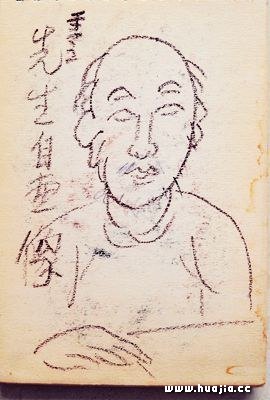 先生自画像
www.huajia.cc